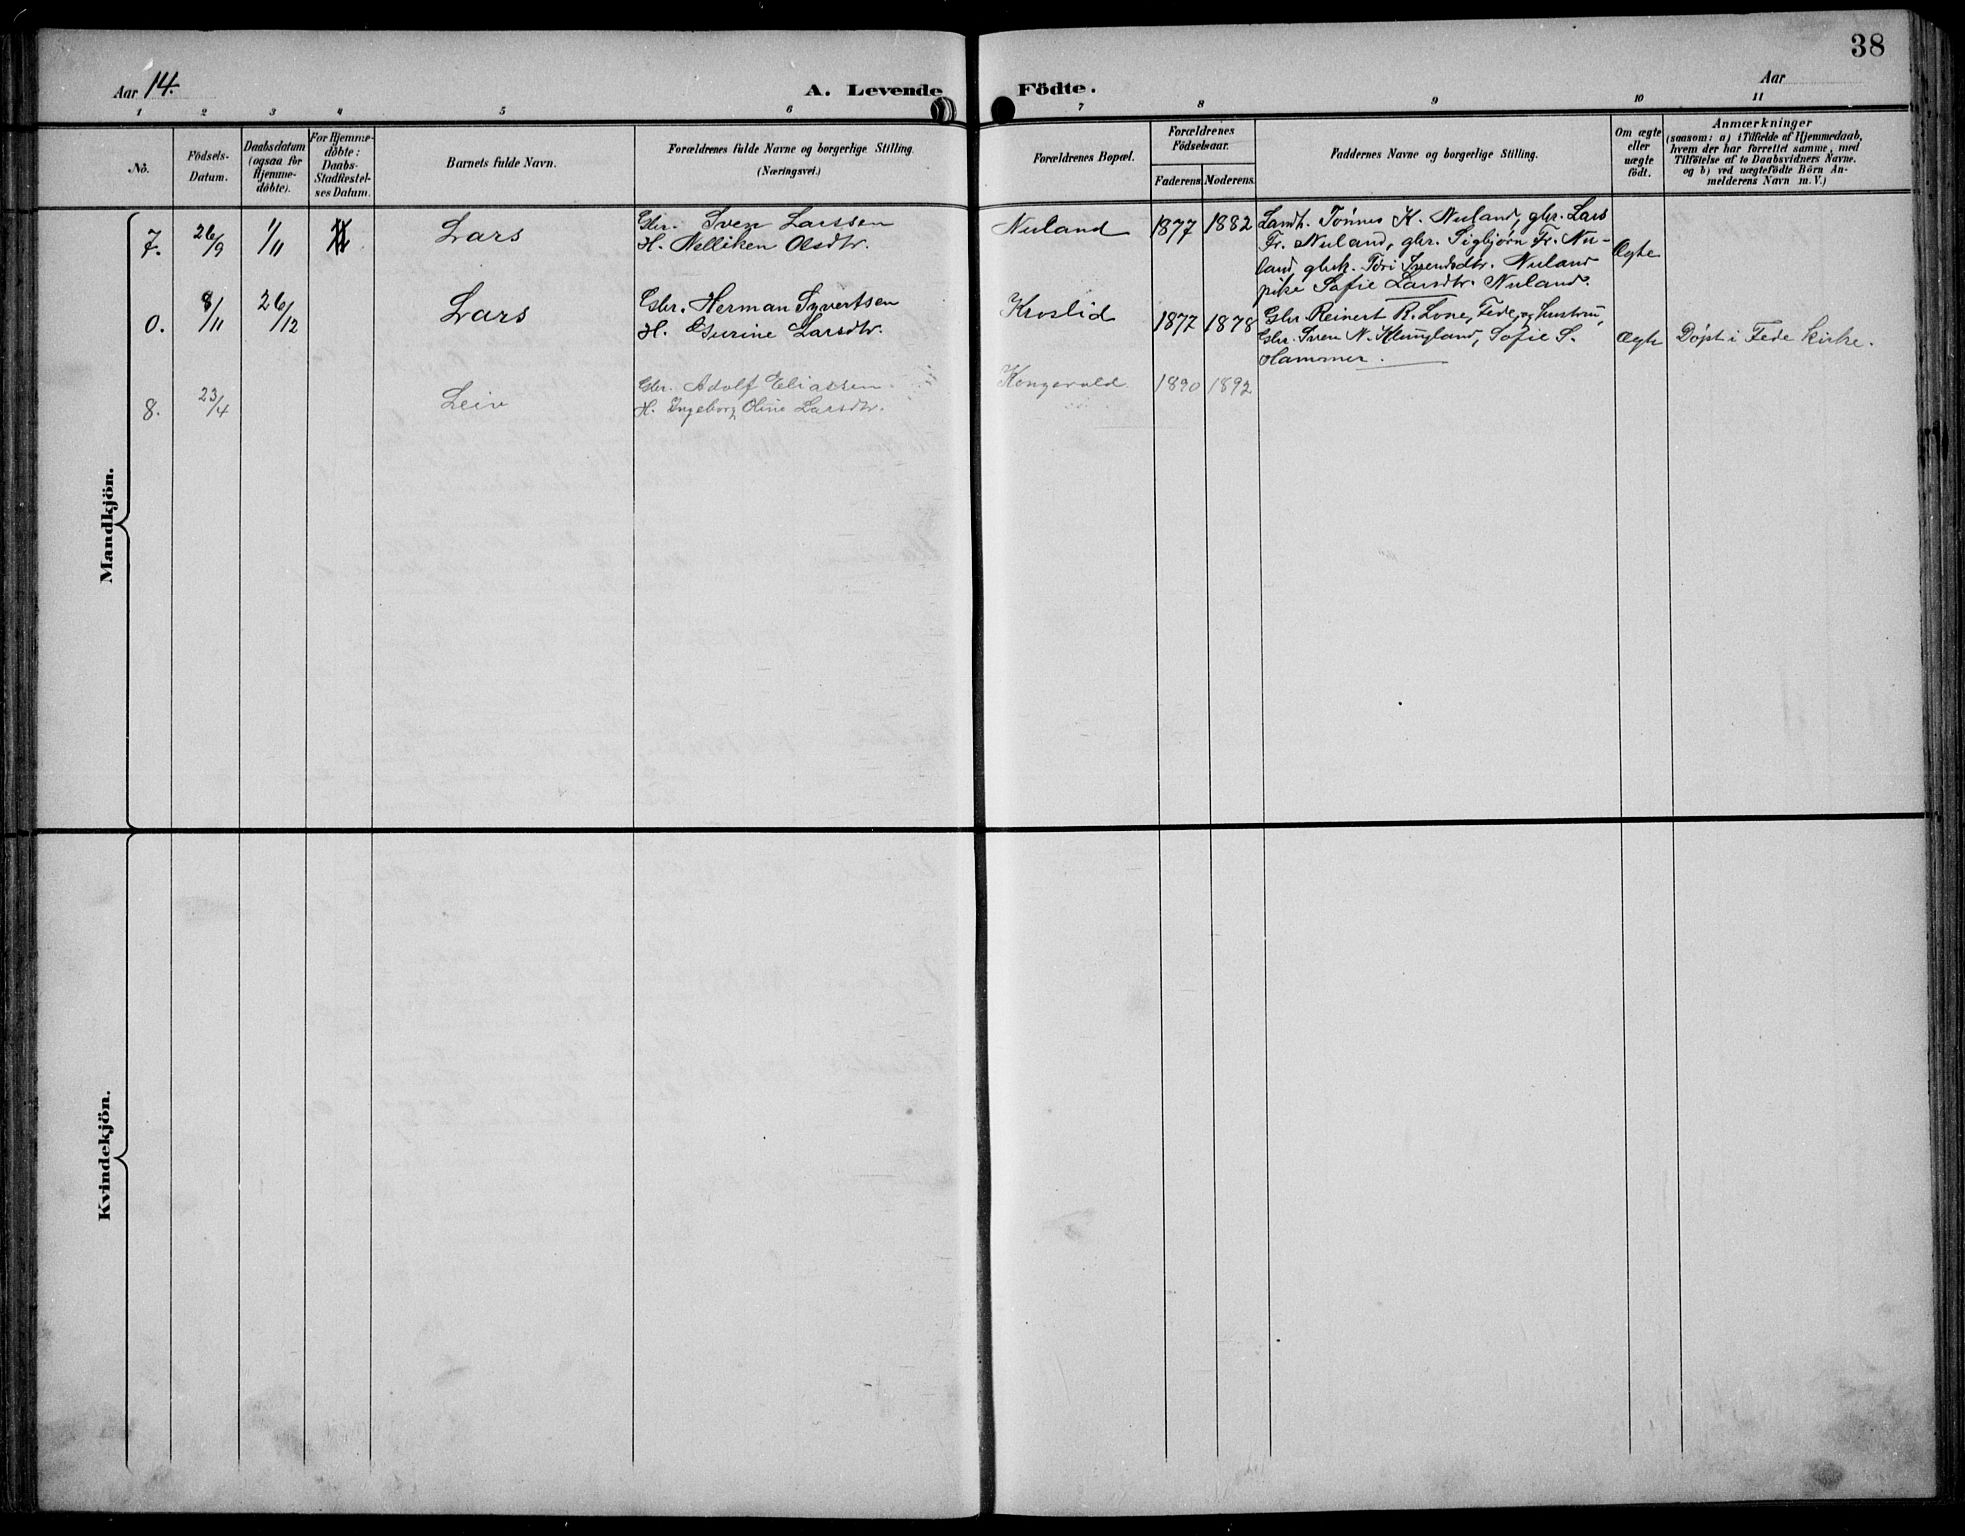 38
Aar 14.
A. Levende
Födte.
Aar
1 2 3 4 5 6 7 8 9 10 11
No.
Födsels-
Datum.
Daabsdatum
(ogsaa for
Hjemme-
döbte).
For Hjemme-
döbte:
Daabs-
Stadfæstel-
ses Datum.
Barnets fulde Navn.
Forældrenes fulde Navne og borgerlige Stilling.
(Næringsvei.)
Forældrenes Bopæl.
Forældrenes
Födselsaar.
Faderens. Moderens.
Faddernes Navne og borgerlige Stilling.
Om ægte
eller
uægte
födt.
Anmærkninger
(saasom: a) i Tilfælde af Hjemmedaab,
hvem der har forrettet samme, med
Tilföielse af to Daabsvidners Navne.
og b) ved uægtefödte Börn An-
melderens Navn m. V.)
Mandkjön.
7. 26/9 1/11 Lars
Gbr. Sven Larssen
H. Nelliken Olsdtr.
Nuland 1877 1882
Landh. Tønnes K. Nuland, gbr. Lars
Fr. Nuland, gbr. Sigbjørn Fr. Nu-
land, gbrk. Tori Svendsdtr. Nuland
pike Sofie Larsdtr. Nuland.
Ægte
0. 8/11 26/12 Lars
Gbr. Herman Syvertsen
H. Gurine Larsdtr.
Kroslid 1877 1878
Gbr Reinert R. Lone, Fede, og hustru,
Gbr. Sven N. Klungland, Sofie S.
Hammer.
Ægte
Døpt i Fede Kirke.
8. 23/4 Leiv
Gbr. Adolf Eliassen
H. Ingeborg Oline Larsdtr.
Kongevold 1890 1892
Kvindekjön.